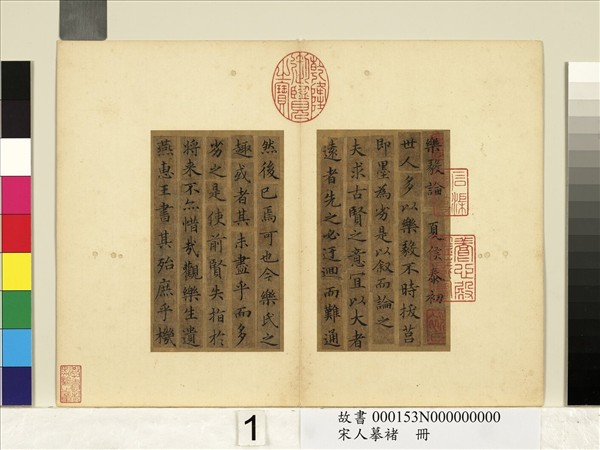 樂毅論 夏侯泰初
世人多以樂毅不時拔莒
即墨為劣是以叙而論之
夫求古賢之意宜以大者
遠者先之必迂迴而難通
然後已焉可也今樂氏之
趣或者其未盡乎而多
劣之是使前賢失指於
將来不亦惜哉觀樂生遺
燕惠王書其殆庶乎機
乾隆御覽之寶
養心殿
1
故書 000153N000000000
宋人摹褚 冊